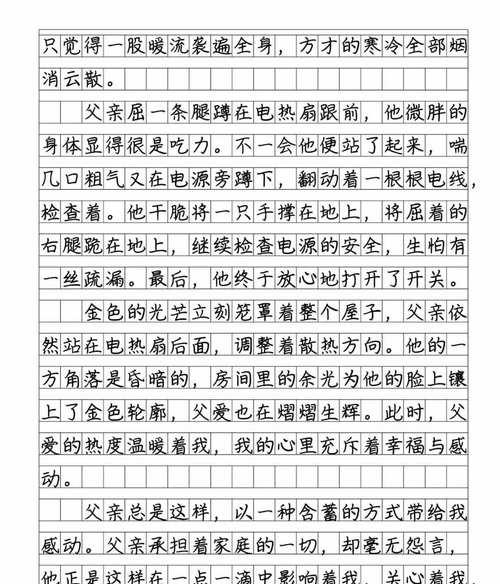 只觉得一股暖流袭遍全身，方才的寒冷全部烟
消云散。
父亲屈一条腿蹲在电热扇跟前，他微胖的
身体显得很是吃力。不一会他便站了起来，喘
几口粗气又在电源旁蹲下，翻动着一根根电线，
检查着。他干脆将一只手撑在地上，将屈着的
右腿跪在地上，继续检查电源的安全，生怕有
一丝疏漏。最后，他终于放心地打开了开关。
金色的光芒立刻笼罩着整个屋子，父亲依
然站在电热扇后面，调整着散热方向。他的一
方角落是昏暗的，房间里的余光为他的脸上镶
上了金色轮廓，父爱也在熠熠生辉。此时，父
爱的热度温暖着我，我的心里充斥着幸福与感
动。
父亲总是这样，以一种含蓄的方式带给我
感动。父亲承担着家庭的一切，却毫无怨言，
他正是这样在一点一滴中影响着我，关心着我，